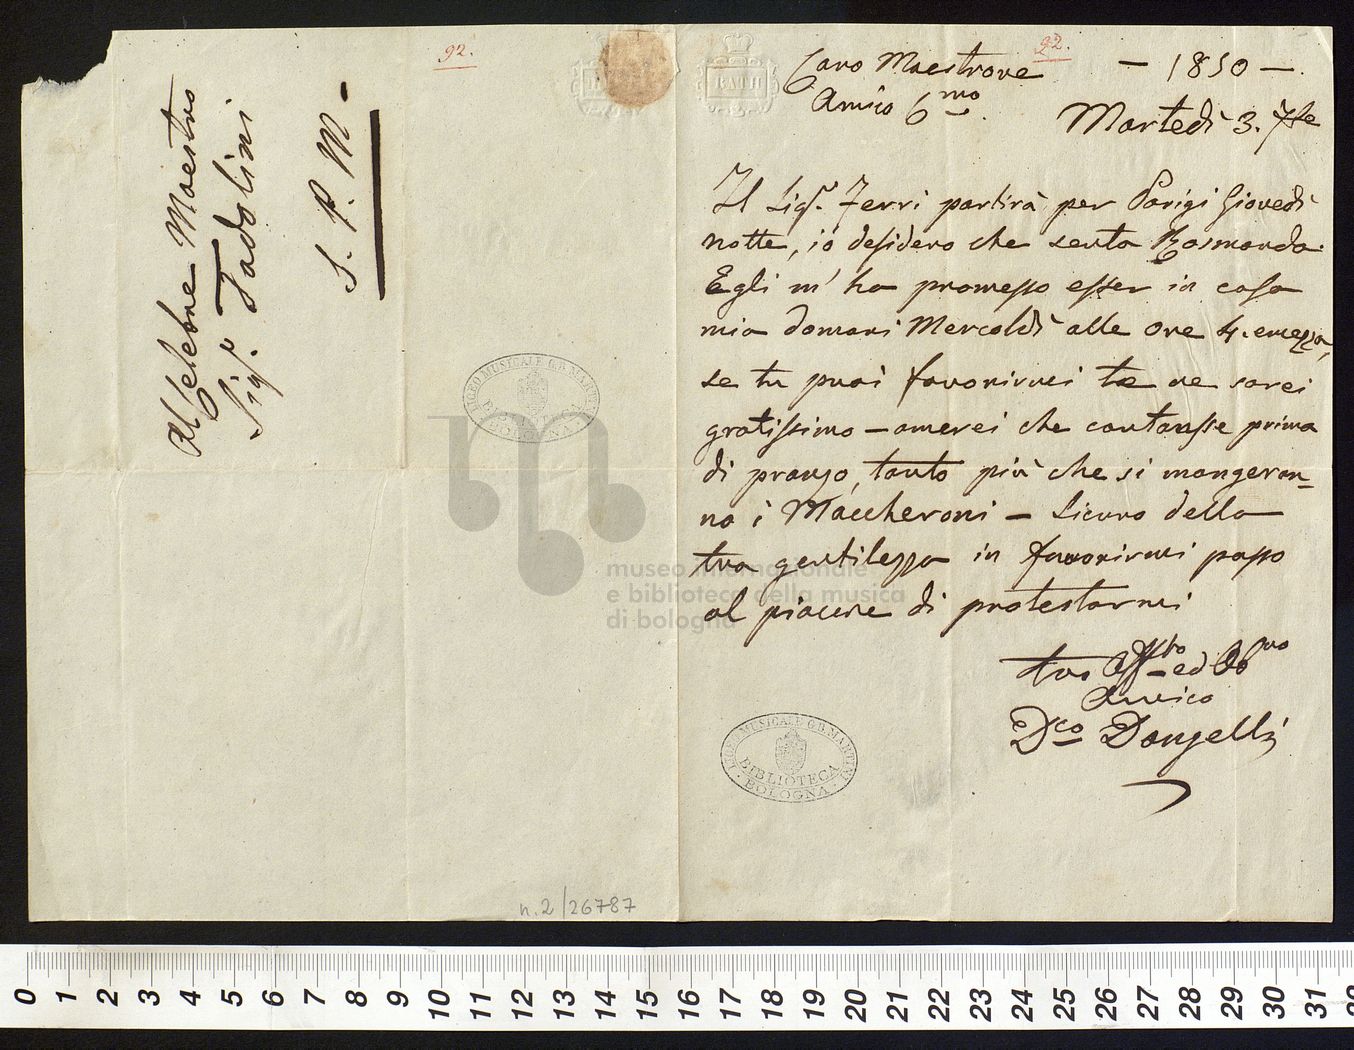 92.
Al Celebre Maestro
Sig.r Tadolini
S. P. M.
92.
BATH
Caro Maestrone
Amico C.mo
— 1850 —
Martedì 3. 7bre
Il Sig.r Ferri partirà per Parigi Giovedì
notte, io desidero che senta Rosmonda.
Egli m' ha promesso esser in casa
mia domani Mercoldì alle ore 4. e mezza,
se tu puoi favorirmi te ne sarei
gratissimo — amerei che cantasse prima
di pranzo, tanto più che si mangeran-
no i Maccheroni — Sicuro della
tua gentilezza in favorirmi passo
al piacere di protestarmi
tuo Aff.to ed
Amico
D.co Donzelli
LICEO MUSICALE G.B. MARTINI
BIBLIOTECA
BOLOGNA
LICEO MUSICALE G.B. MARTINI
BIBLIOTECA
BOLOGNA
museo internazionale
e biblioteca della musica
di bologna
n. 2/26787
0 1 2 3 4 5 6 7 8 9 10 11 12 13 14 15 16 17 18 19 20 21 22 23 24 25 26 27 28 29 30 31